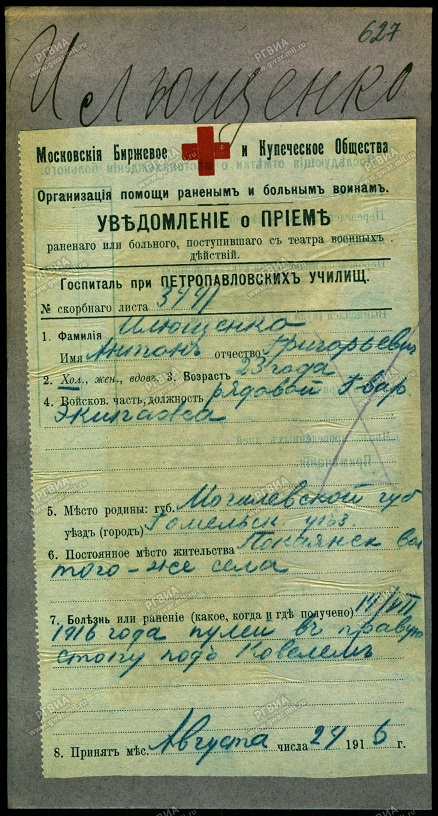 627
Илющенко
Московскія Биржевое и Купеческое Общества
Организація помощи раненымъ и больнымъ воинамъ.
УВѢДОМЛЕНІЕ о ПРІЕМѢ
раненаго или больного, поступившаго съ театра военныхъ
дѣйствій.
Госпиталь при ПЕТРОПАВЛОВСКИХЪ УЧИЛИЩ.
№ скорбнаго листа 3441
1. Фамилія Илющенко
Имя Антонъ отчество Григорьевич
2. Хол., жен., вдовъ. 3. Возрастъ 23 года
4. Войсков. часть, должность рядовой Гвар.
Экипажа
5. Мѣсто родины: губ. Могилевской губ
уѣздъ (городъ) Гомельск уѣз.
6. Постоянное мѣсто жительства вол
того-же села
7. Болѣзнь или раненіе (какое, когда и гдѣ получено) 14/VII
1916 года пулей въ правую
стопу подъ Ковелемъ
8. Принятъ мѣс. Августа числа 24 1916 г.
РГВИА
www.gwar.mil.ru